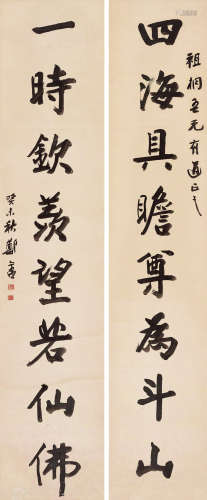 四海具瞻尊為斗山
祖桐五兄有道正之
一時欽羨望若仙佛
癸未秋鄭